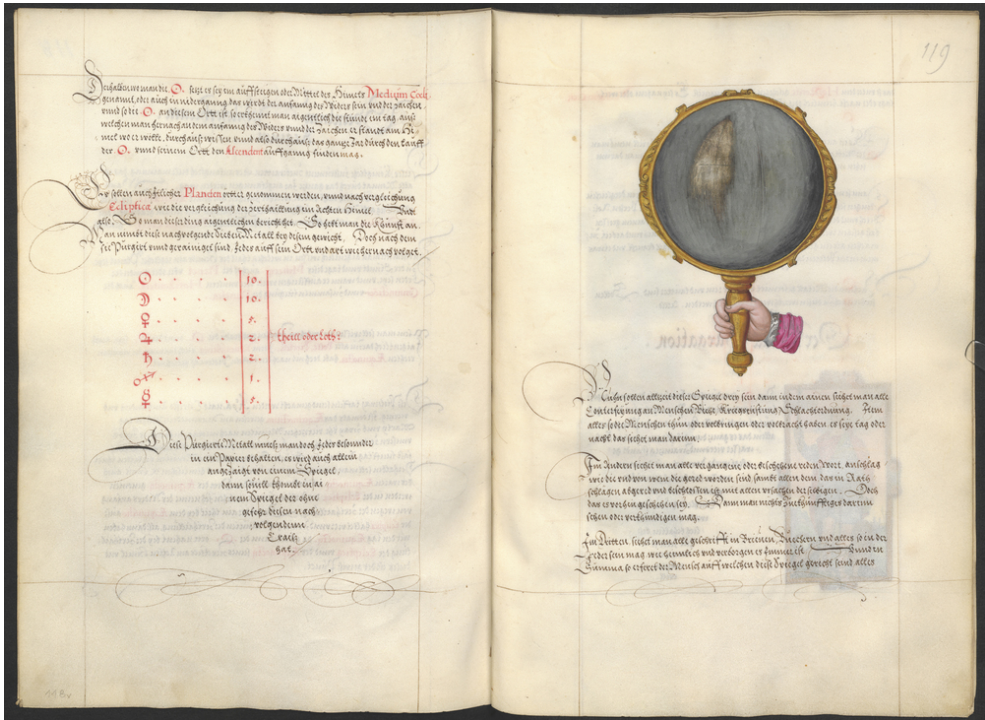 Derhalben wo man die ☉. setzt es sey im auffsteigen oder Mittel des Himels Medium Coeli
genannt, oder auch in nidergang das wirdt der anfanng des Widers sein vnd der zaichen
vnnd so die ☉. an disem Ortt ist so erkennt man aigentlich die stunde im tag, aus
welchen man hernach den anfanng des Widers vnnd der Zaichen
durchaus das gantze Jar durch den Lauff
der ☉. vnnd seinem Ortt den Ascendent auffganng finden mag.
sollen auch Planeten örtter genommen werden, vnnd nach vergleichung
Ecliptica wie die vergleichung der im Achten Himel.
So man dise ding aigentlichen bericht hat. So hebt man die Kunst an.
Man nimbt dise nachvolgende Siben Metall bey disem gewicht. Doch nach dem
sie Purgiert vnnd gerainiget sind Jedes auff sein Ortt vnd art wie hernach volget.
☉ . . . . 10.
☽ . . . . 10.
♀ . . . . 5.
♃ . . . . 2. theill oder Loth:
♄ . . . . 2.
♂ . . . . 1.
☿ . . . . 5.
Diese Purgierte Metall mues man doch Jedes besonnder
in ein Papier behalten, es wird auch allein
angezaigt von einem Spiegel
dann souill thuendt in ai
nem Spiegel der ohne
gesetz diesen nach
volgendenn
Craiß
hat.
119
sollen allzeit dieser Spiegel drey sein dann in dem ainen siehet man alle
Conterfeyung an Menschen Kriegsrüstung Schlachordnung. Item
alles so die Menschen thuin oder volbringen oder volbracht haben es seye tag oder
nacht das siehet man darinn.
Im Andern siehet man alle vergangene oder beschehene reden Wort, anschlag
wie die vnd von wem die gered worden seind sambt allen dem das in Rath
schlägen abgered vnd beschlossen ist mit allen vrsachen derselbigen. Doch
das es vorhin geschehen sey. Dann man nichts zukhünfftiges darinn
sehen oder verkhündigen mag.
Im Dritten siehet man alle geschrifft in Brieuen, Büechern vnd alles so in der
Feder sein mag wie heimlich vnd verborgen es Jimmer ist. Vnnd in
Summa so erferet der Mensch auff welchen diese Spiegel gericht seind alles
118v